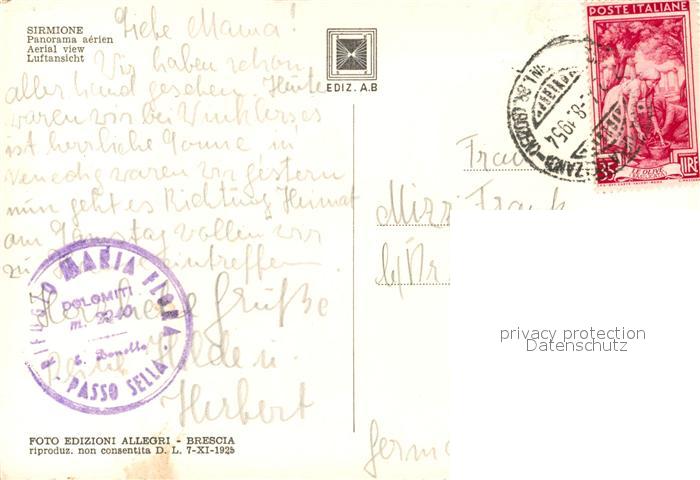 SIRMIONE
Panorama aérien
Aerial view
Luftansicht
EDIZ. A.B
Liebe Mama!
Wir haben schon
allerhand gesehen. Heute
waren wir bei
ist herrliche Sonne in
Venedig waren wir gestern
nun geht es Richtung Heimat
am Samstag wollen wir
zu eintreffen.
Herzliche Grüße
Hilde u.
Herbert
RIFUGIO MARIA FLORA
DOLOMITI
m. 2240
PASSO SELLA
FOTO EDIZIONI ALLEGRI - BRESCIA
riproduz. non consentita D. L. 7-XI-1925
POSTE ITALIANE
35 LIRE
8. 1954
Frau
Mizzi Frank
b/Nr
Germ
privacy protection
Datenschutz